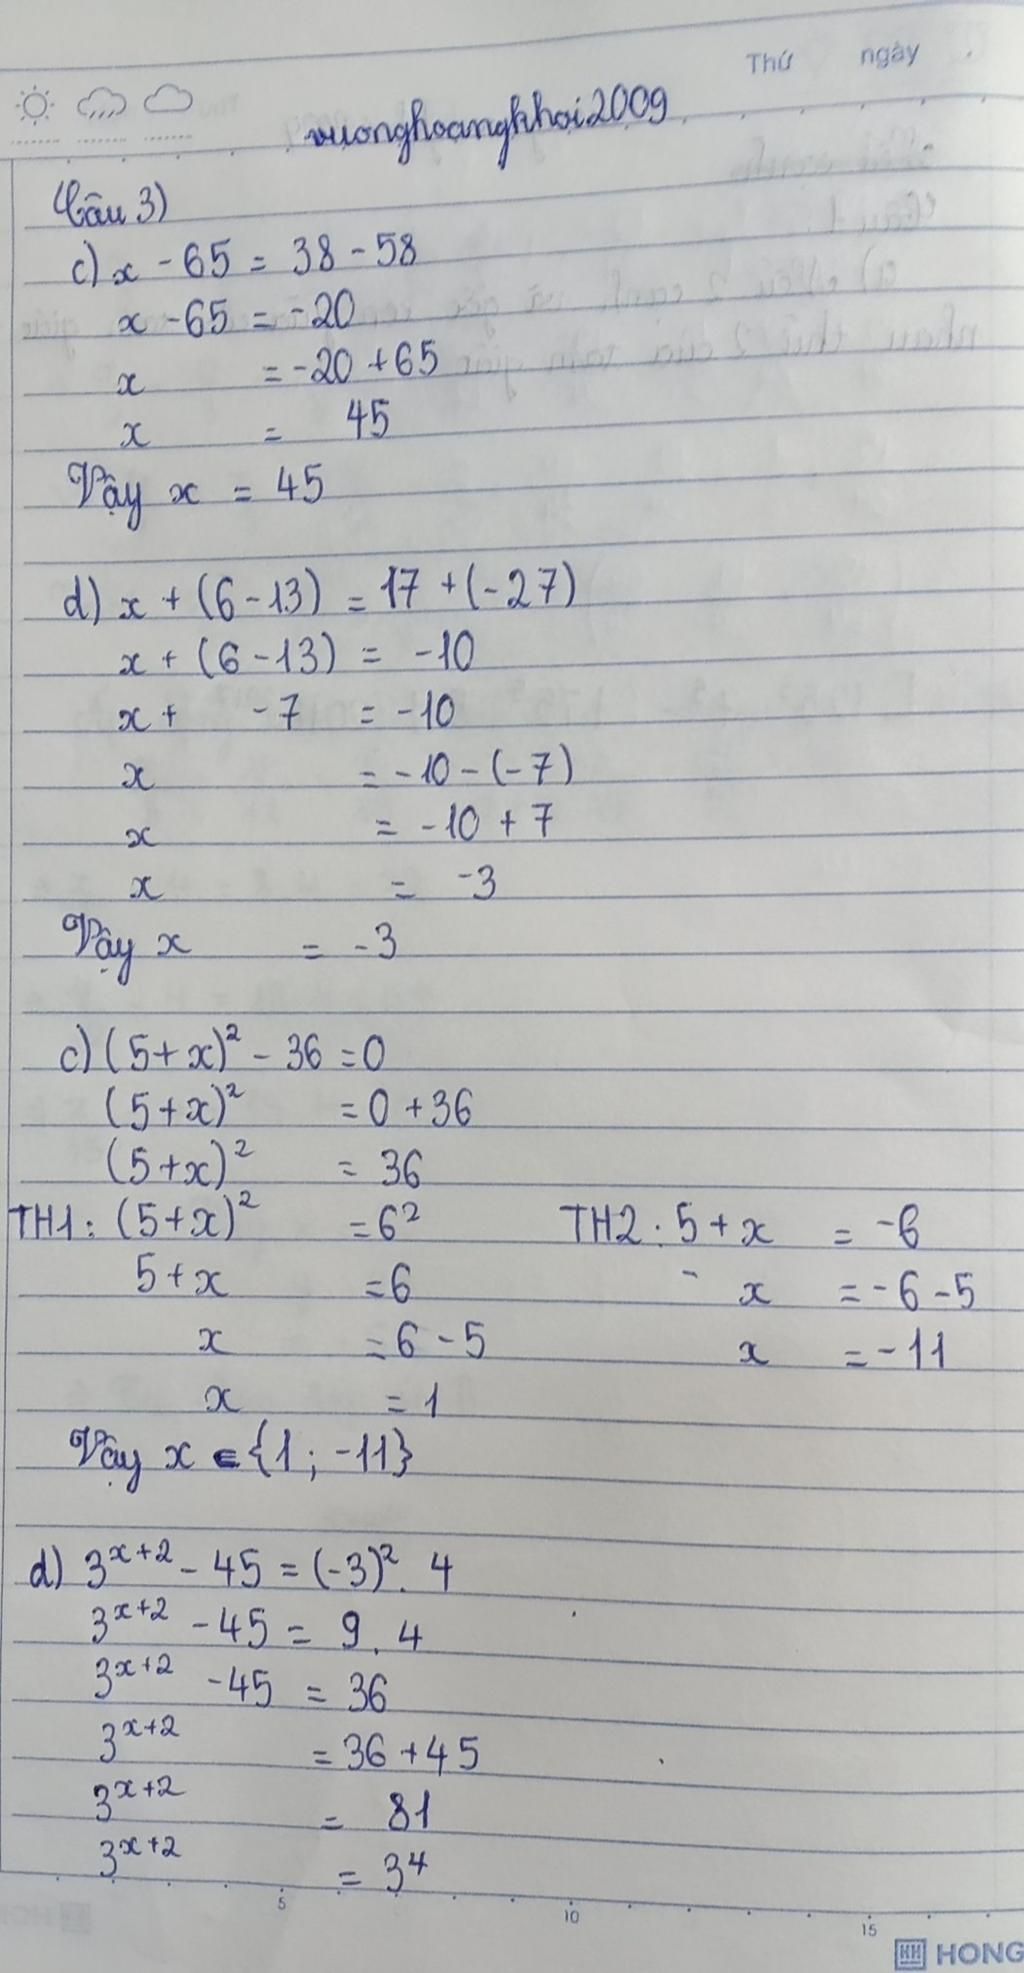 Thứ ngày
vuonghoangkhoi2009
Câu 3)
c) x - 65 = 38 - 58
x - 65 = -20
x = -20 + 65
x = 45
Vậy x = 45
d) x + (6 - 13) = 17 + (-27)
x + (6 - 13) = -10
x + -7 = -10
x = -10 - (-7)
x = -10 + 7
x = -3
Vậy x = -3
c) (5+x)² - 36 = 0
(5+x)² = 0 + 36
(5+x)² = 36
TH1: (5+x)² = 6² TH2: 5 + x = -6
5 + x = 6 x = -6 - 5
x = 6 - 5 x = -11
x = 1
Vậy x ∈ {1; -11}
d) 3^{x+2} - 45 = (-3)² . 4
3^{x+2} - 45 = 9 . 4
3^{x+2} - 45 = 36
3^{x+2} = 36 + 45
3^{x+2} = 81
3^{x+2} = 3⁴
5 10 15
HH HONG